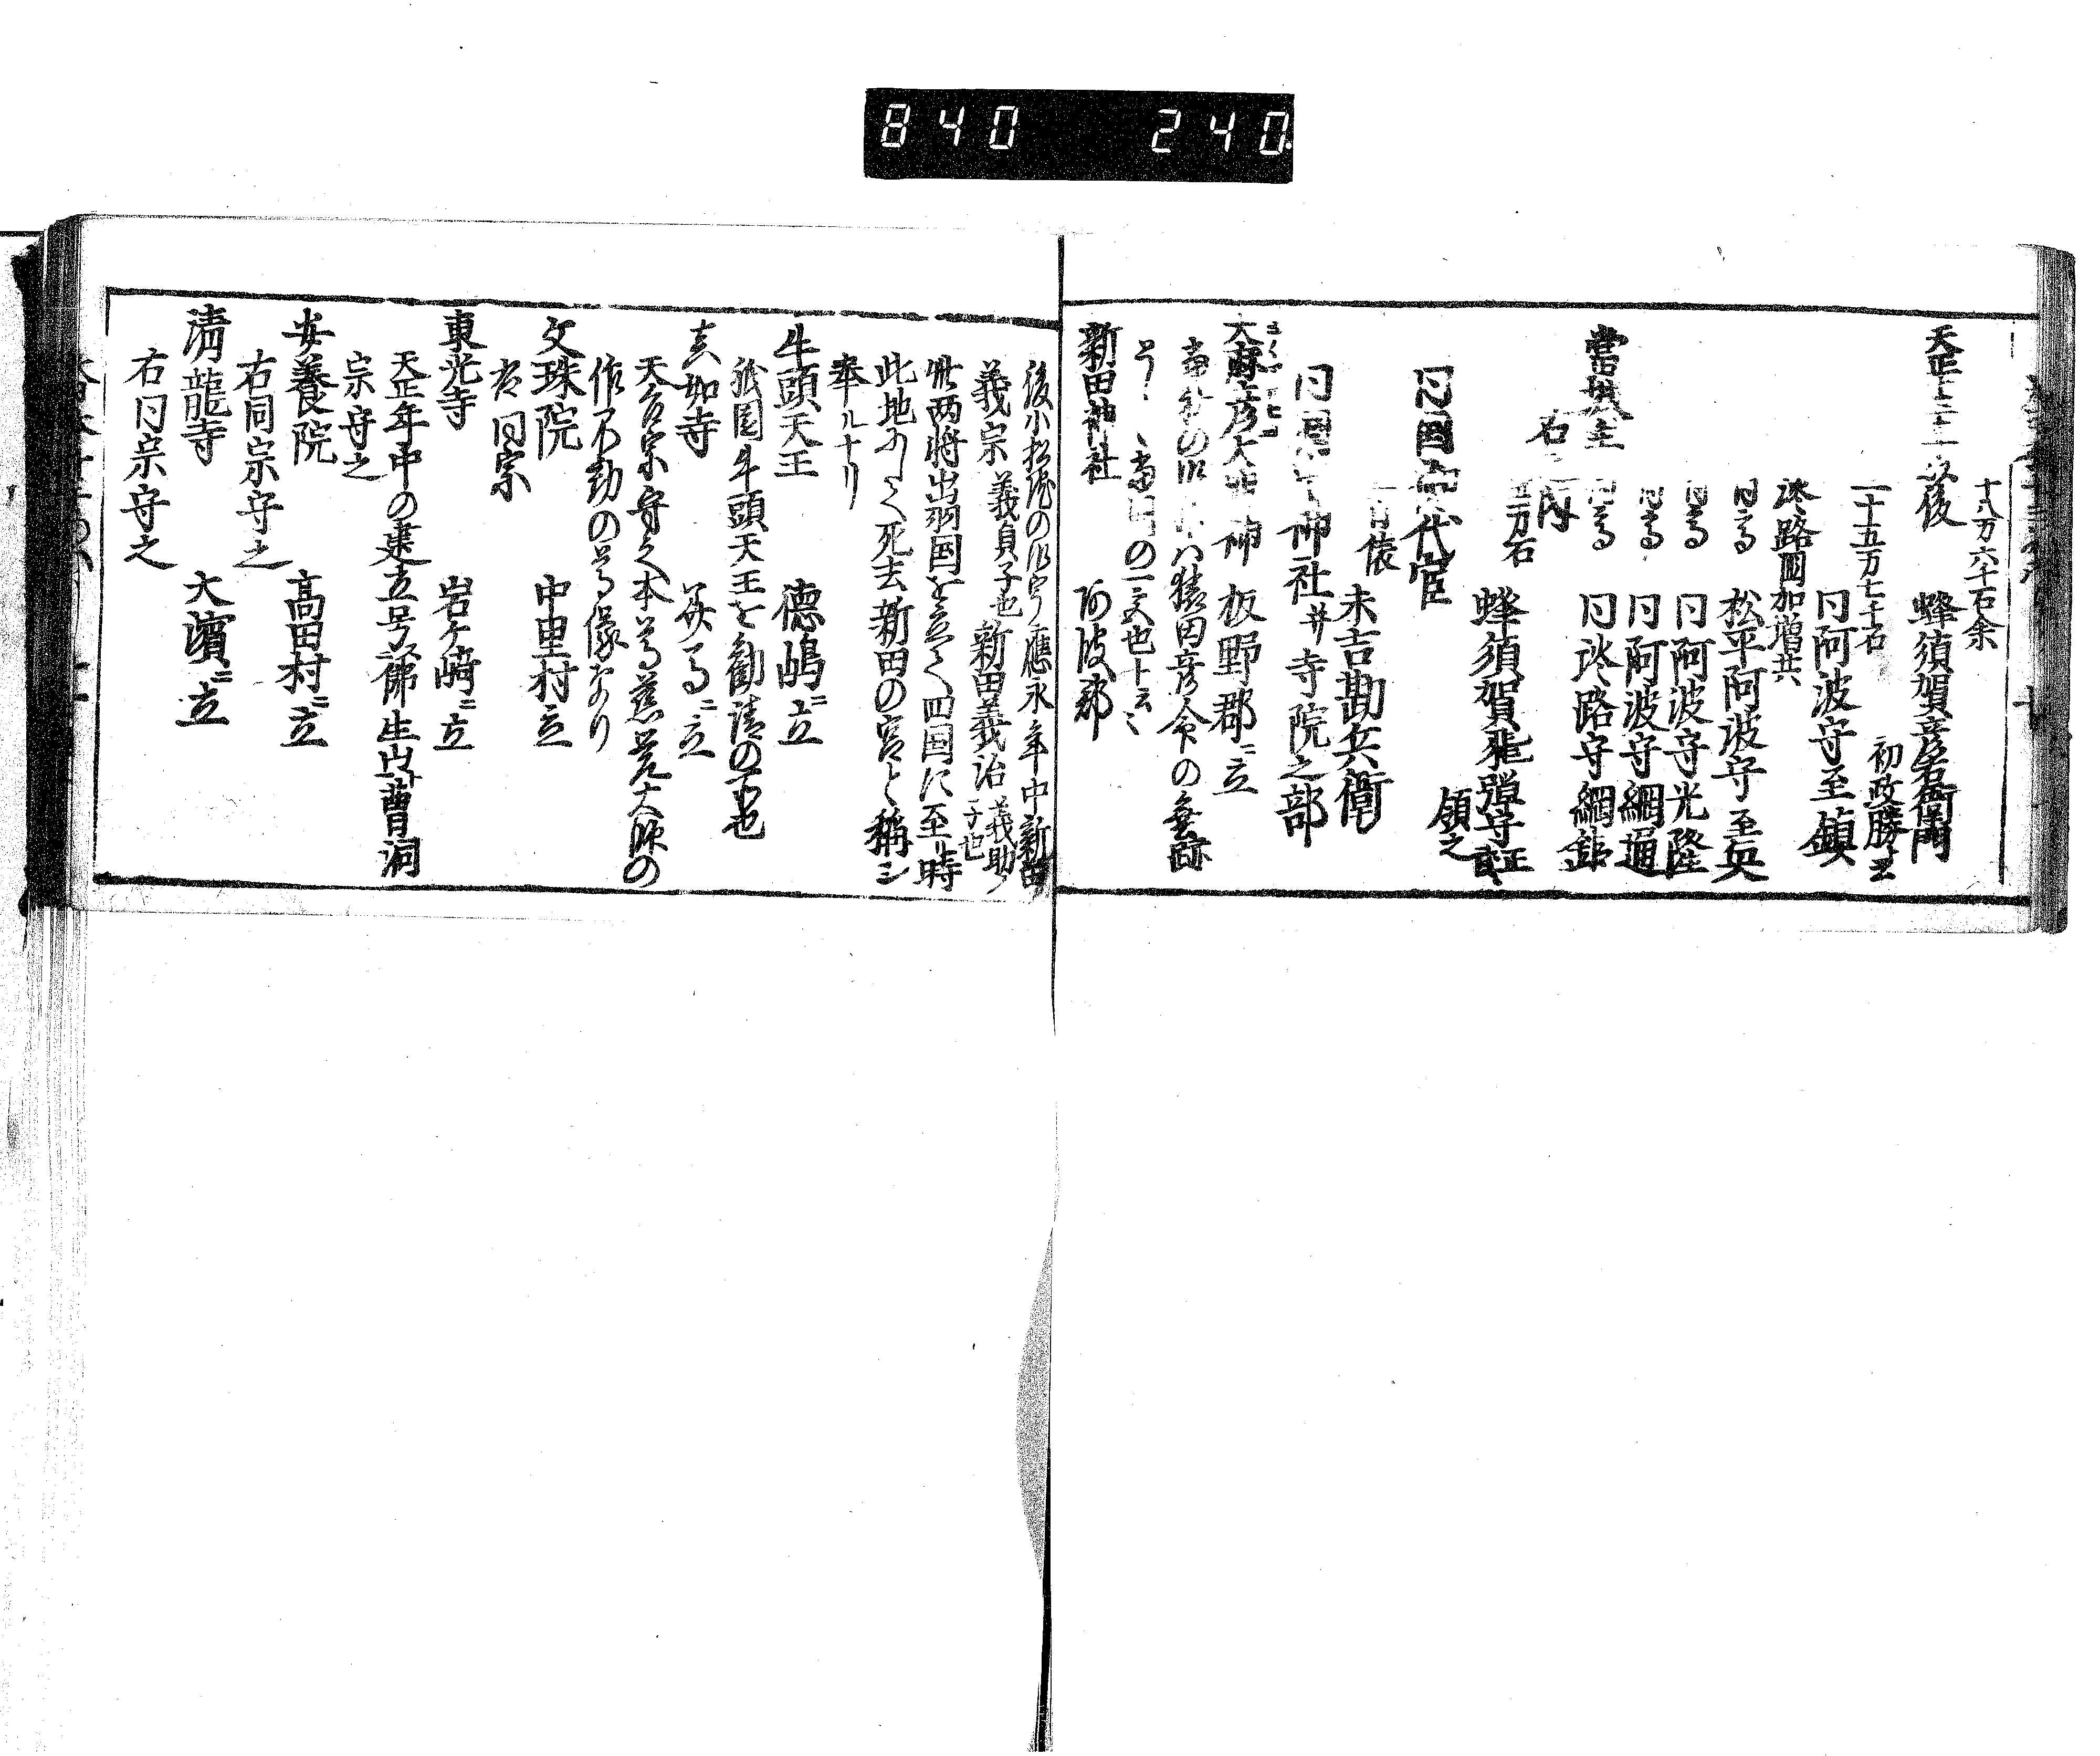 840 240
十八万六千石余
天正十三年以後 蜂須賀彦右衛門
初政勝ト云
二十五万七千石
同阿波守至鎮
淡路国加増共
同高 松平阿波守至央
同高 同阿波守光隆
同高 同阿波守綱通
同高 同淡路守綱
當城主
右之内
五万石 蜂須賀飛彈守
領之
同国 代官
百俵 末吉勘兵衛
同国 神社并寺院之部
大 彦大 神 板野郡ニ立
當社の ハ猿田彦命の垂跡
當国の一宮也ト云々
新田神社 阿波郡
後小松院の御宇應永年中新田
義宗 義貞子也 新田義治 義助ノ子也
此両将出羽国を立て四国に至ル時
此地にて死去新田の宮と稱シ
奉ルナリ
牛頭天王 徳嶋ニ立
祇園牛頭天王を勧請の所也
真如寺 ニ立
天台宗守之本尊慈覚大師の
作不動の尊像あり
文珠院 中里村立
右同宗
東光寺 岩ケ崎ニ立
天正年中の建立号佛生山曹洞
宗守之
安養院 高田村ニ立
右同宗守之
清龍寺 大濱ニ立
右同宗守之